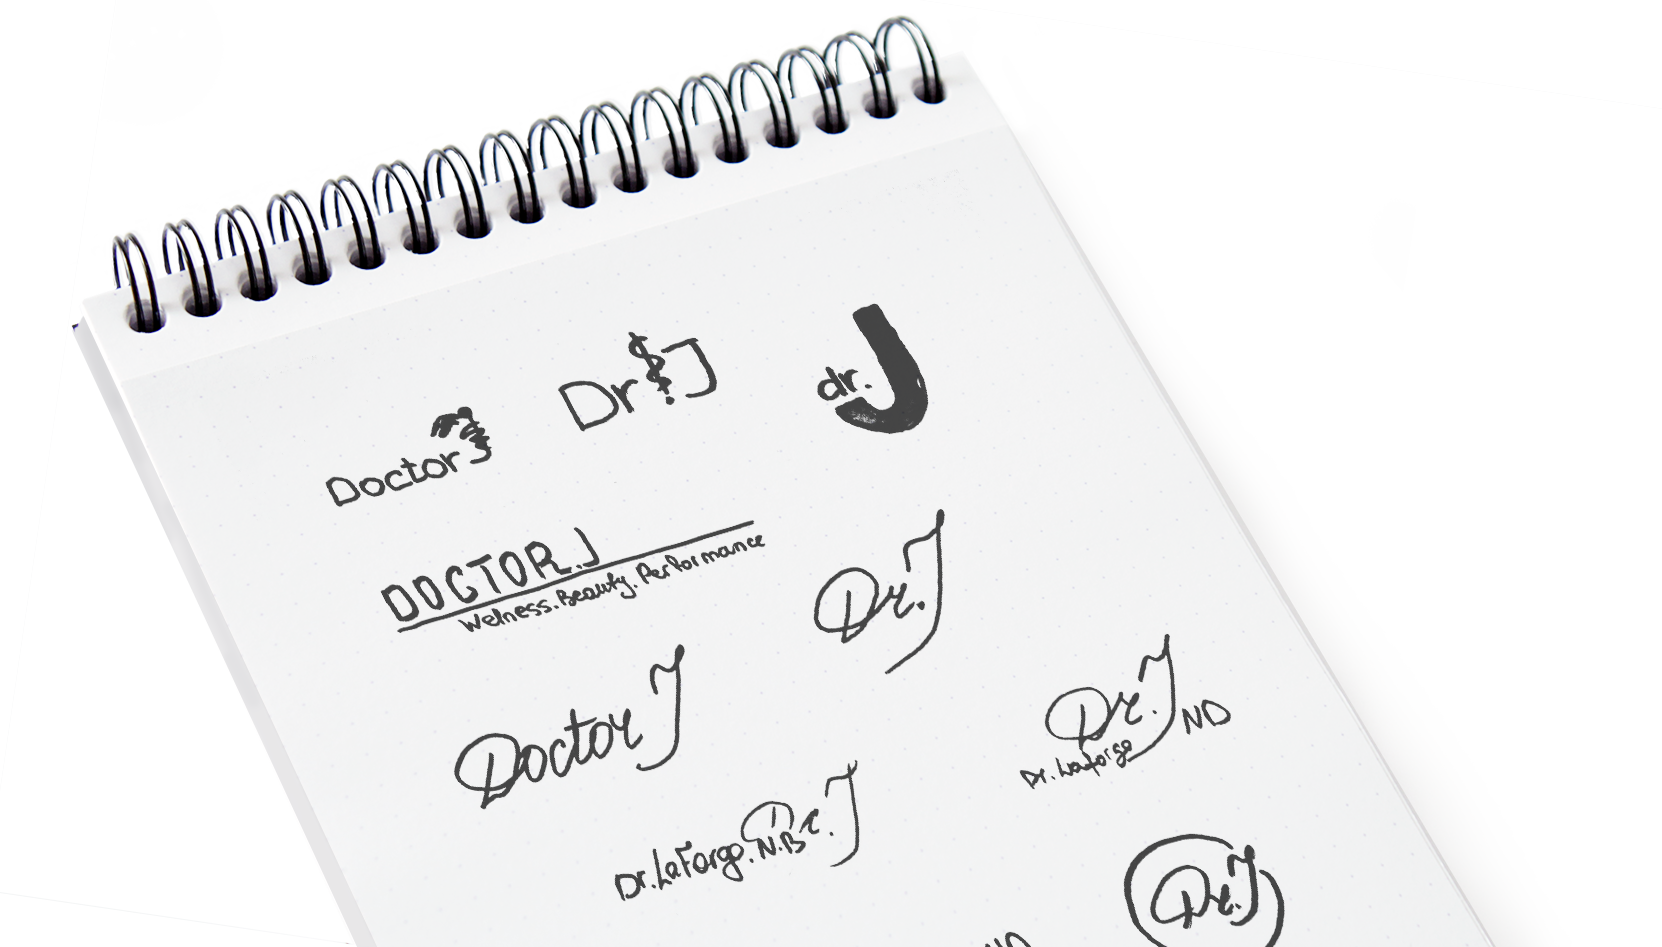 Doctor J
Dr J
dr. J
DOCTOR.J
Welness.Beauty.Performance
Dr.J
Doctor J
Dr.J ND
Dr. Laforgo
Dr.J
Dr.LaForgo. N.B
Dr.J